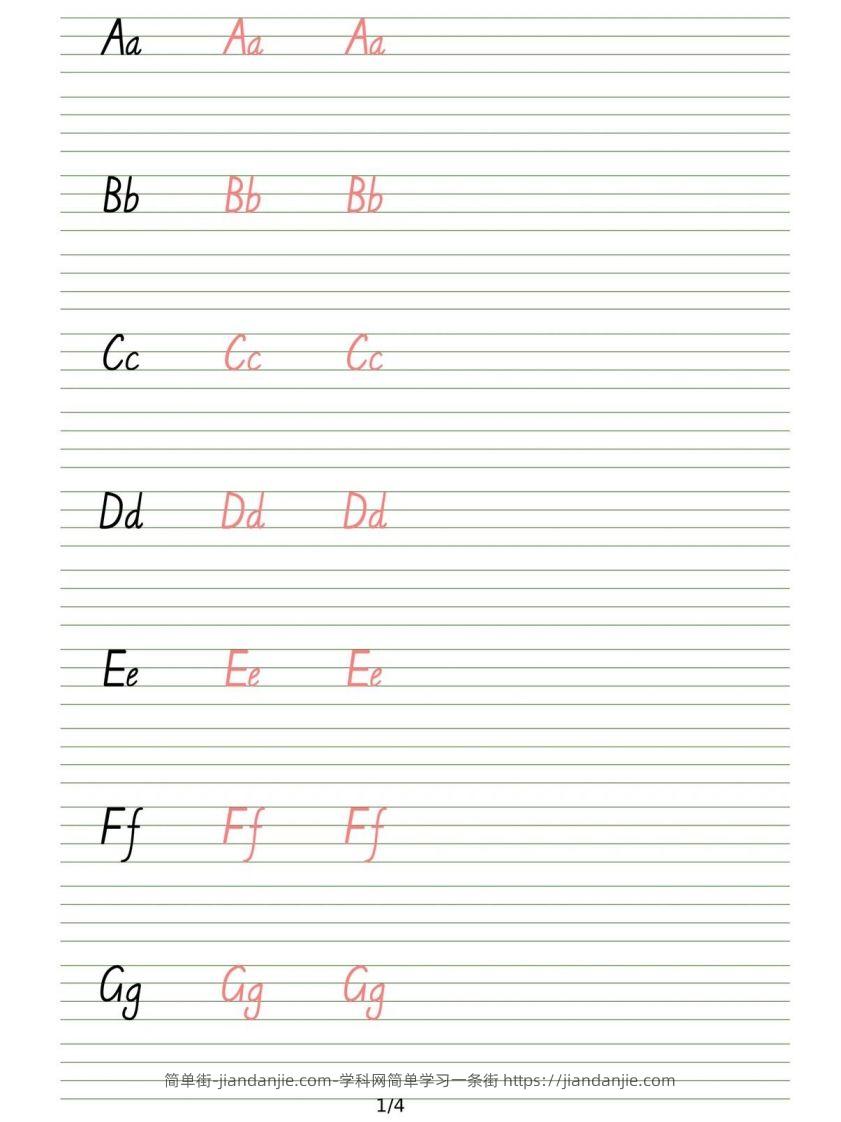 Aa Aa Aa
Bb Bb Bb
Cc Cc Cc
Dd Dd Dd
Ee Ee Ee
Ff Ff Ff
Gg Gg Gg
简单街-jiandanjie.com-学科网简单学习一条街 https://jiandanjie.com
1/4